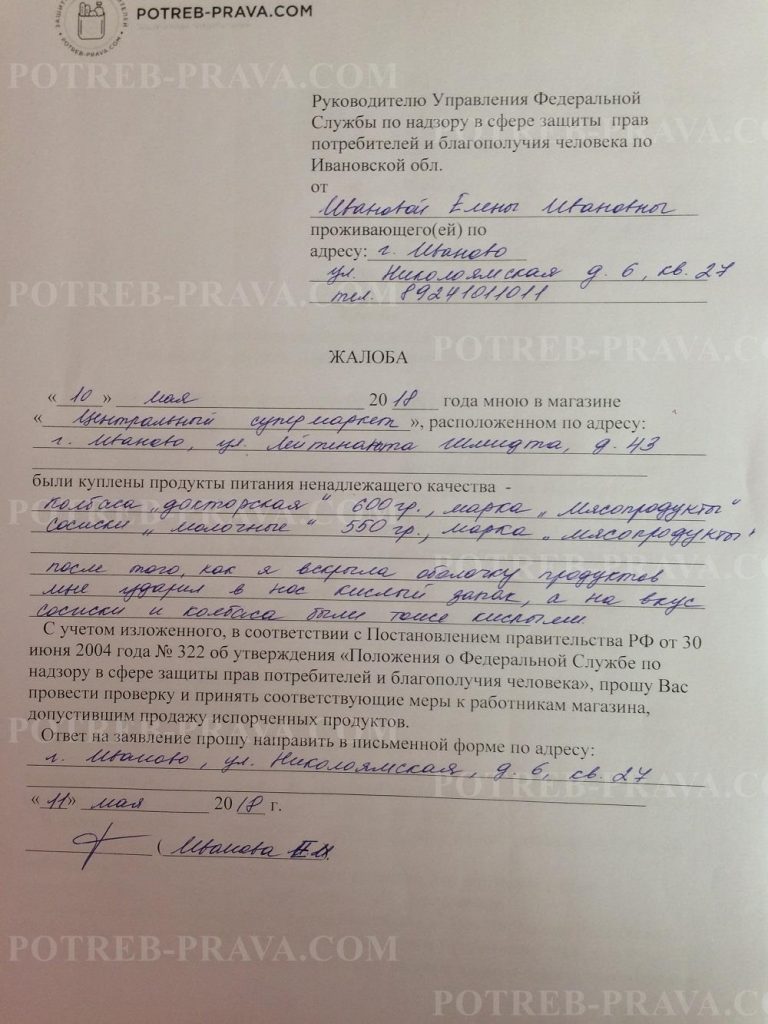 POTREB-PRAVA.COM
POTREB-PRAVA.COM
Руководителю Управления Федеральной
Службы по надзору в сфере защиты прав
потребителей и благополучия человека по
Ивановской обл.
от
Ивановой Елены Ивановны
проживающего(ей) по
адресу: г. Иваново
ул. Николоямская д. 6, кв. 27
тел. 89241011011
POTREB-PRAVA.COM
ЖАЛОБА
« 10 » мая 2018 года мною в магазине
« Центральный супермаркет », расположенном по адресу:
г. Иваново, ул. Лейтенанта Шмидта, д. 43
были куплены продукты питания ненадлежащего качества -
колбаса „докторская“ 600гр., марка „Мясопродукты“
сосиски „молочные“ 550гр., марка „Мясопродукты“
после того, как я вскрыла оболочку продуктов
мне ударил в нос кислый запах, а на вкус
сосиски и колбаса были тоже кислыми.
С учетом изложенного, в соответствии с Постановлением правительства РФ от 30
июня 2004 года № 322 об утверждения «Положения о Федеральной Службе по
надзору в сфере защиты прав потребителей и благополучия человека», прошу Вас
провести проверку и принять соответствующие меры к работникам магазина,
допустившим продажу испорченных продуктов.
Ответ на заявление прошу направить в письменной форме по адресу:
г. Иваново, ул. Николоямская, д. 6, кв. 27
« 11 » мая 2018 г.
( Иванова Е.И.
POTREB-PRAVA.COM
POTREB-PRAVA.COM